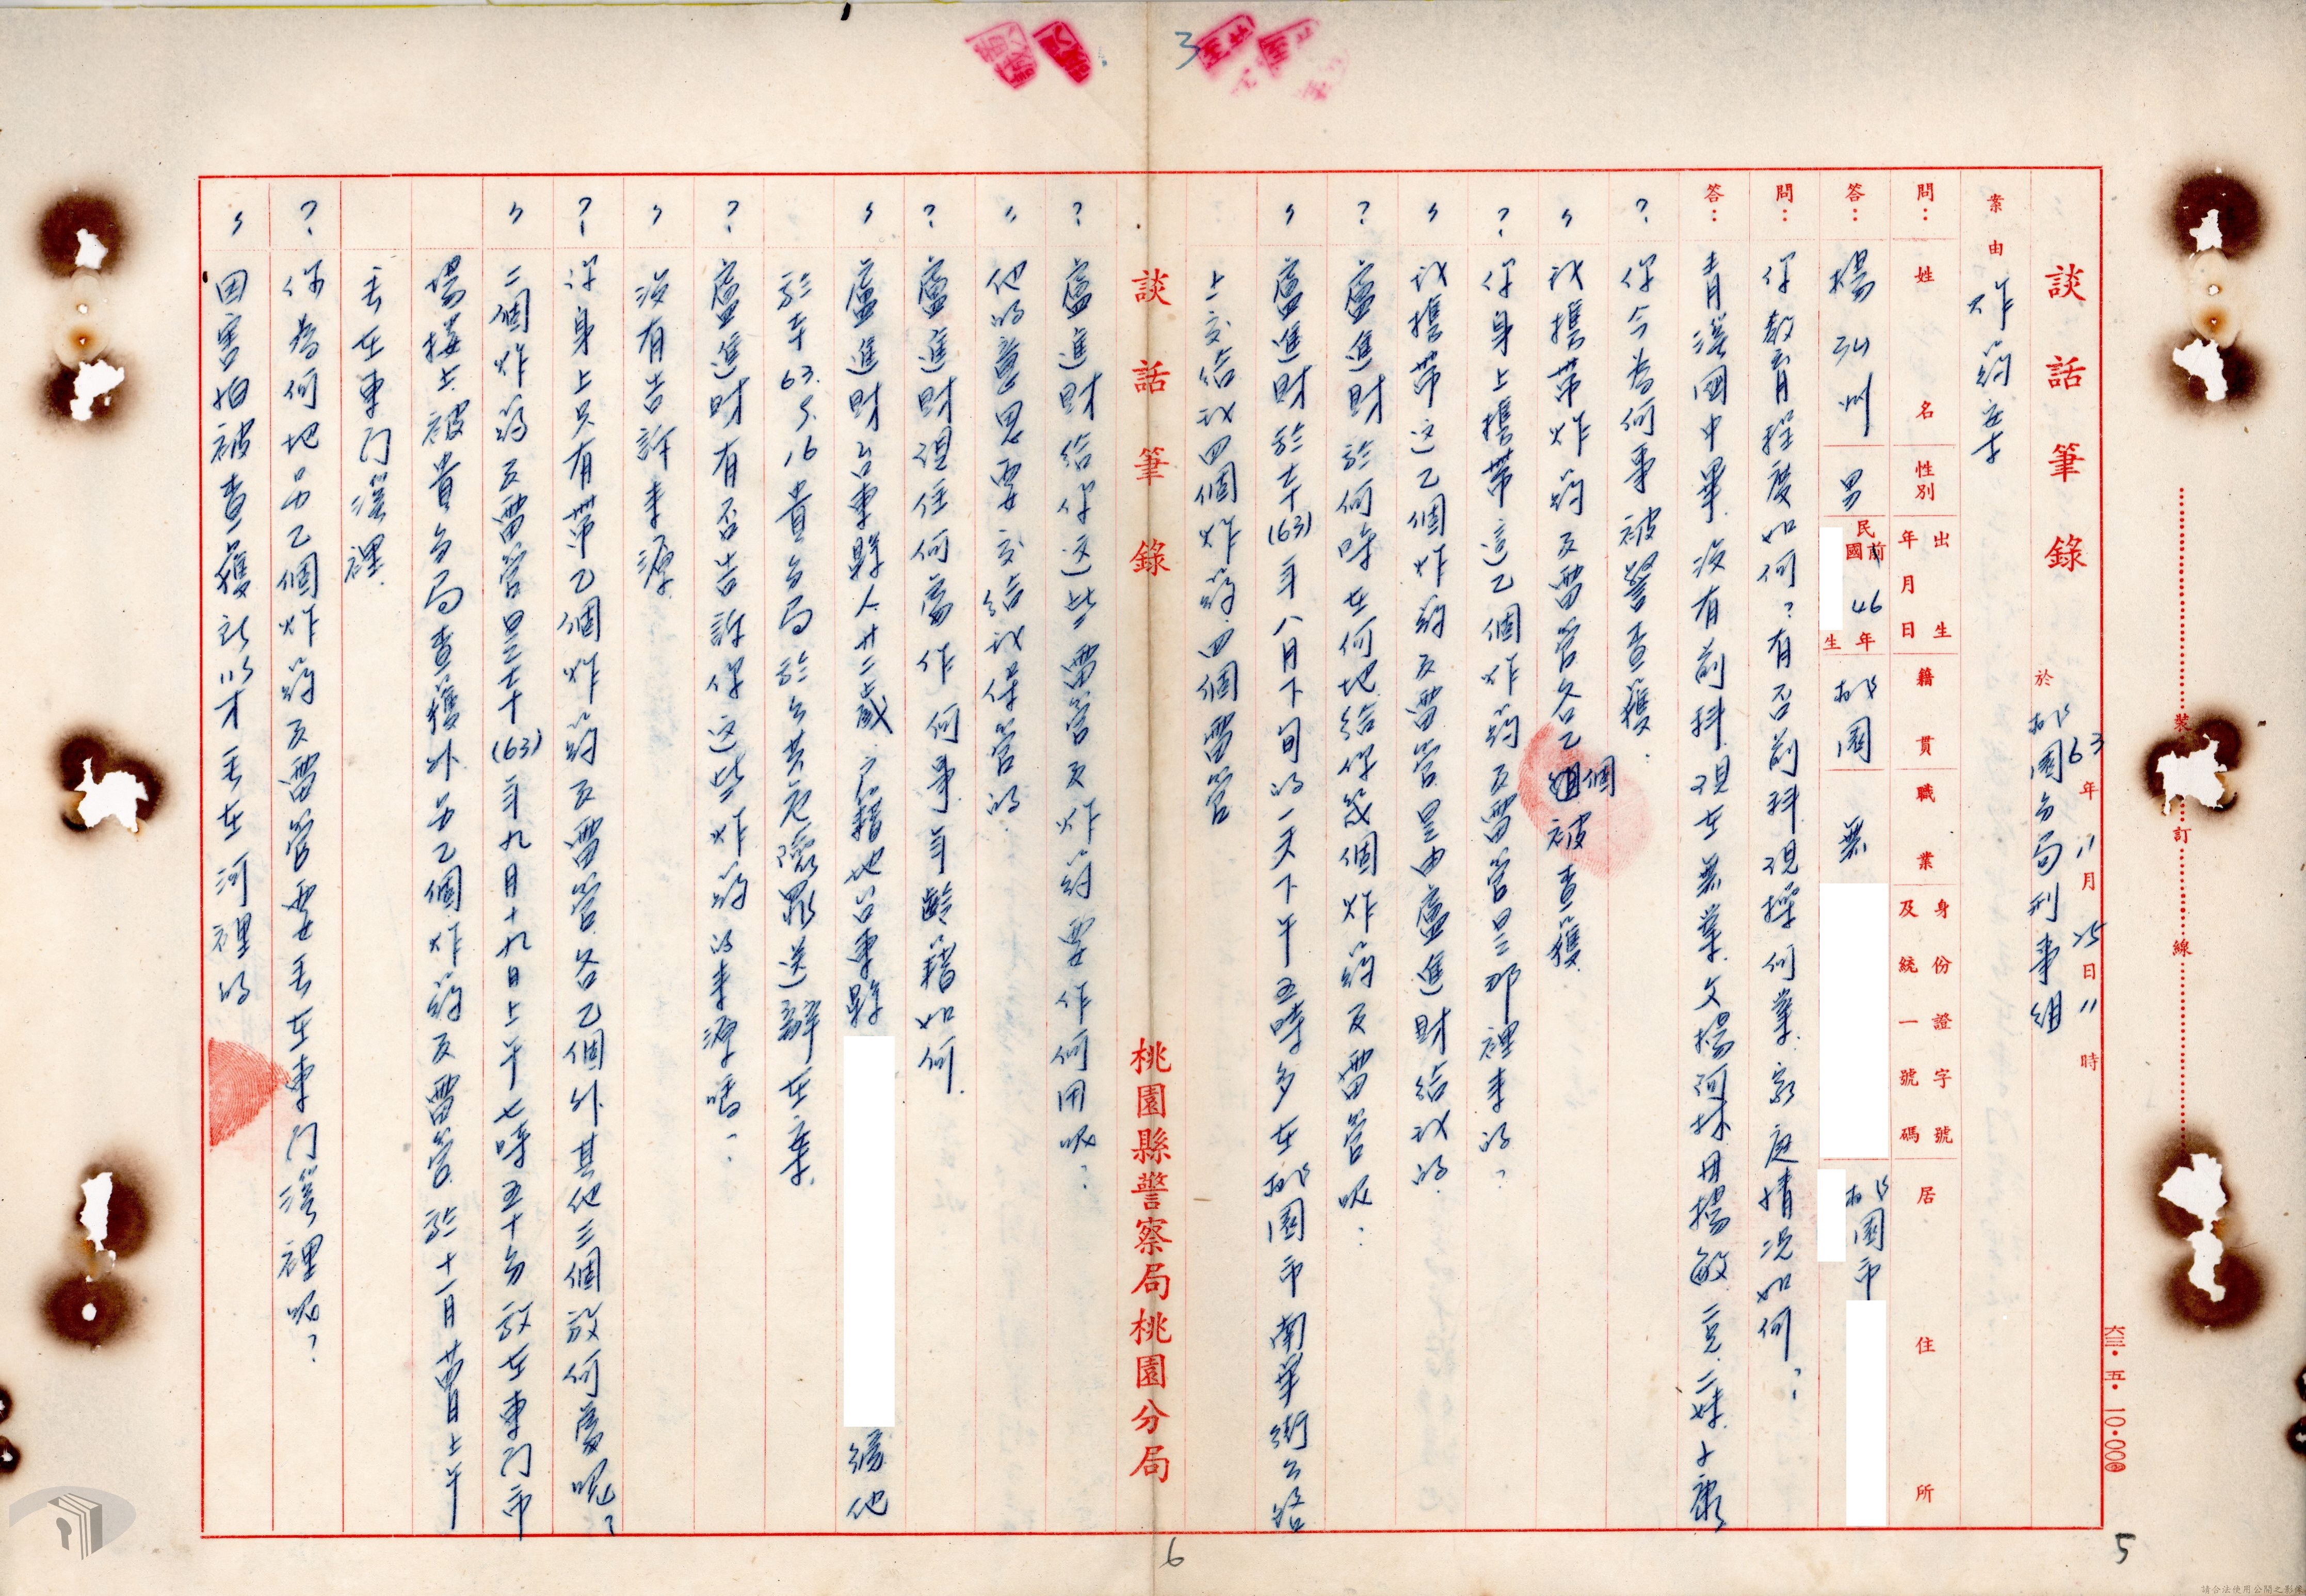 談話筆錄
於 63年11月25日11時
桃園分局刑事組
案由 炸筒案
問: 姓名 性別 出生年月日 籍貫 職業 身份證字號及統一號碼 居住所
答: 楊 州 男 民國前 46年 生 桃園 無 桃園市
問: 你教育程度如何?有否前科.現操何業.家庭情況如何?
答: 青溪國中畢.沒有前科.現在無業.父楊河林.母楊敏.
? 你今為何事被警查獲.
〃 我攜帶炸筒及雷管各乙個被查獲.
? 你身上攜帶這乙個炸筒及雷管是那裡來的?
〃 我攜帶这乙個炸筒及雷管是由盧進財給我的.
? 盧進財於何時在何地給你幾個炸筒及雷管呢.
〃 盧進財於本(63)年八月下旬的一天下午五時多在桃園市南華街公路
上交給我四個炸筒.四個雷管
談話筆錄 桃園縣警察局桃園分局
? 盧進財給你这些雷管及炸筒要作何用呢?
〃 他的意思要交給我保管的.
? 盧進財現住何處作何事年齡籍如何.
〃 盧進財台東縣人廿二歲.戶籍地台東縣 據他
於本63.9.16貴分局於公共危險罪送辦在案.
? 盧進財有否告訴你这些炸筒的來源嗎?
〃 沒有告訴來源
? 你身上只有帶乙個炸筒及雷管各乙個外其他三個放何處呢?
〃 二個炸筒及雷管是本(63)年九月十九日上午七時五十分放在東門市
場樓上.被貴分局查獲外.另乙個炸筒及雷管.於十一月 上午
丟在東門溪裡.
? 你為何地另乙個炸筒及雷管要丟在東門溪裡呢?
〃 因害怕被查獲所以才丟在河裡的
裝 訂 線
六三.五.一〇.〇〇〇
3
6
5
請合法使用公開之影像